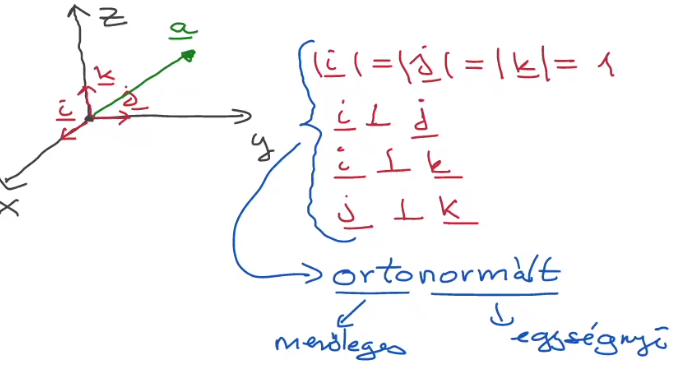 z
a
k
i
j
y
x
|i| = |j| = |k| = 1
i ⊥ j
i ⊥ k
j ⊥ k
ortonormált
merőleges
egységnyi